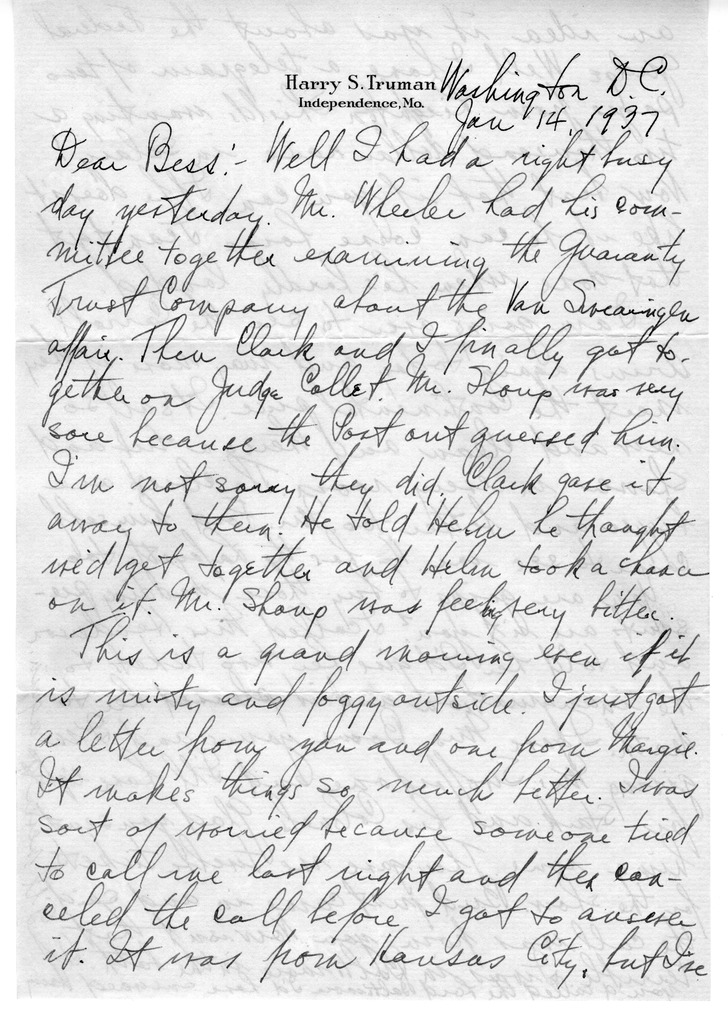 Harry S. Truman
Independence, Mo.
Washington D.C.
Jan 14, 1937
Dear Bess:- Well I had a right busy
day yesterday. Mr. Wheeler had his com-
mittee together examining the Guaranty
Trust Company about the Van Swearingen
affair. Then Clark and I finally got to-
gether on Judge Collet. Mr. Shoup was very
sore because the Post out guessed him.
I'm not sorry they did. Clark gave it
away to them. He told Helm he thought
we'd get together and Helm took a chance
on it. Mr. Shoup was feeling very bitter.
This is a grand morning even if it
is misty and foggy outside. I just got
a letter from you and one from Margie.
It makes things so much better. I was
sort of worried because someone tried
to call me last night and then can-
celed the call before I got to answer
it. It was from Kansas City, but I've